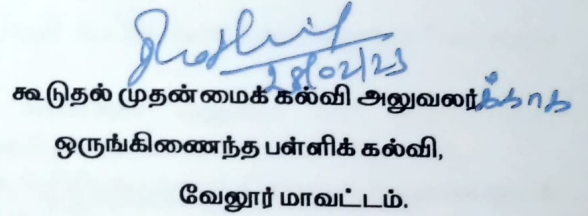 28/02/23
கூடுதல் முதன்மைக் கல்வி அலுவலர்க்காக
ஒருங்கிணைந்த பள்ளிக் கல்வி,
வேலூர் மாவட்டம்.